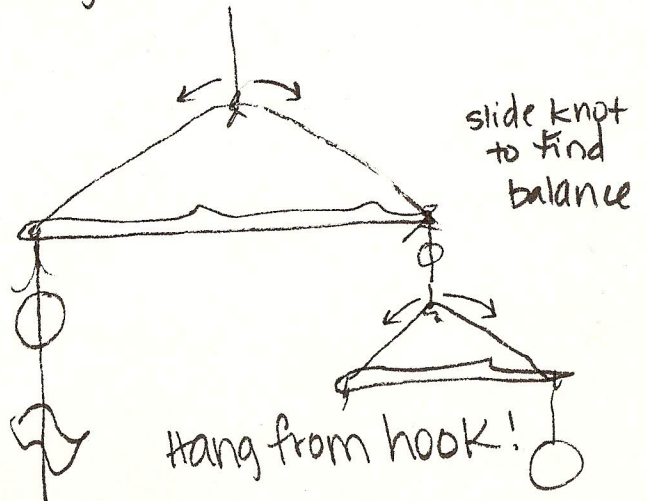 slide knot
to find
balance
Hang from hook!